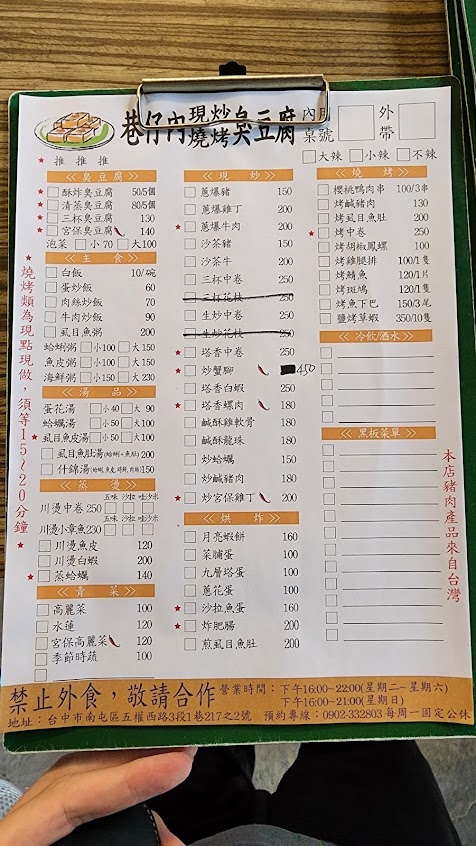 巷仔內現炒燒烤臭豆腐
內用
桌號
外帶
★推 推 推
大辣 小辣 不辣
<<臭豆腐>>
酥炸臭豆腐 50/5個
清蒸臭豆腐 80/5個
三杯臭豆腐 130
宮保臭豆腐 140
泡菜 小70 大100
<<主 食>>
白飯 10/碗
蛋炒飯 60
肉絲炒飯 70
牛肉炒飯 90
虱目魚粥 200
蛤蜊粥 小100 大150
魚皮粥 小100 大150
海鮮粥 小150 大230
<<湯 品>>
蛋花湯 小40 大90
蛤蠣湯 小50 大100
虱目魚皮湯 小50 大100
虱目魚肚湯(蛤蜊+魚肚) 200
什錦湯 150
<<蒸 燙>>
五味 沙拉 哇沙米
川燙中卷 250
五味 沙拉 哇沙米
川燙小章魚 230
川燙魚皮 120
川燙白蝦 200
蒸蛤蠣 140
<<青 菜>>
高麗菜 100
水蓮 120
宮保高麗菜 120
季節時蔬 100
<<現 炒>>
蔥爆豬 150
蔥爆雞丁 200
蔥爆牛肉 200
沙茶豬 150
沙茶牛 200
三杯中卷 250
三杯花枝 250
生炒中卷 250
生炒花枝 250
塔香中卷 250
炒蟹腳 450
塔香白蝦 250
塔香螺肉 180
鹹酥雞軟骨 180
鹹酥龍珠 180
炒蛤蠣 150
炒鹹豬肉 180
炒宮保雞丁 200
<<烘 炸>>
月亮蝦餅 160
菜脯蛋 100
九層塔蛋 100
蔥花蛋 100
沙拉魚蛋 160
炸肥腸 200
煎虱目魚肚 200
<<燒 烤>>
櫻桃鴨肉串 100/3串
烤鹹豬肉 150
烤虱目魚肚 200
烤中卷 250
烤胡椒鳳螺 100
烤雞腿排 100/1隻
烤鯖魚 120/1片
烤斑鳩 120/1隻
烤魚下巴 150/3尾
鹽烤草蝦 350/10隻
<<冷飲/酒水>>
<<黑板菜單>>
★燒烤類為現點現做，須等15~20分鐘★
本店豬肉產品來自台灣
禁止外食，敬請合作
營業時間：下午16:00~22:00(星期二~星期六)
下午16:00~21:00(星期日)
地址：台中市南屯區五權西路3段1巷217之2號 預約專線：0902-332803 每周一固定公休